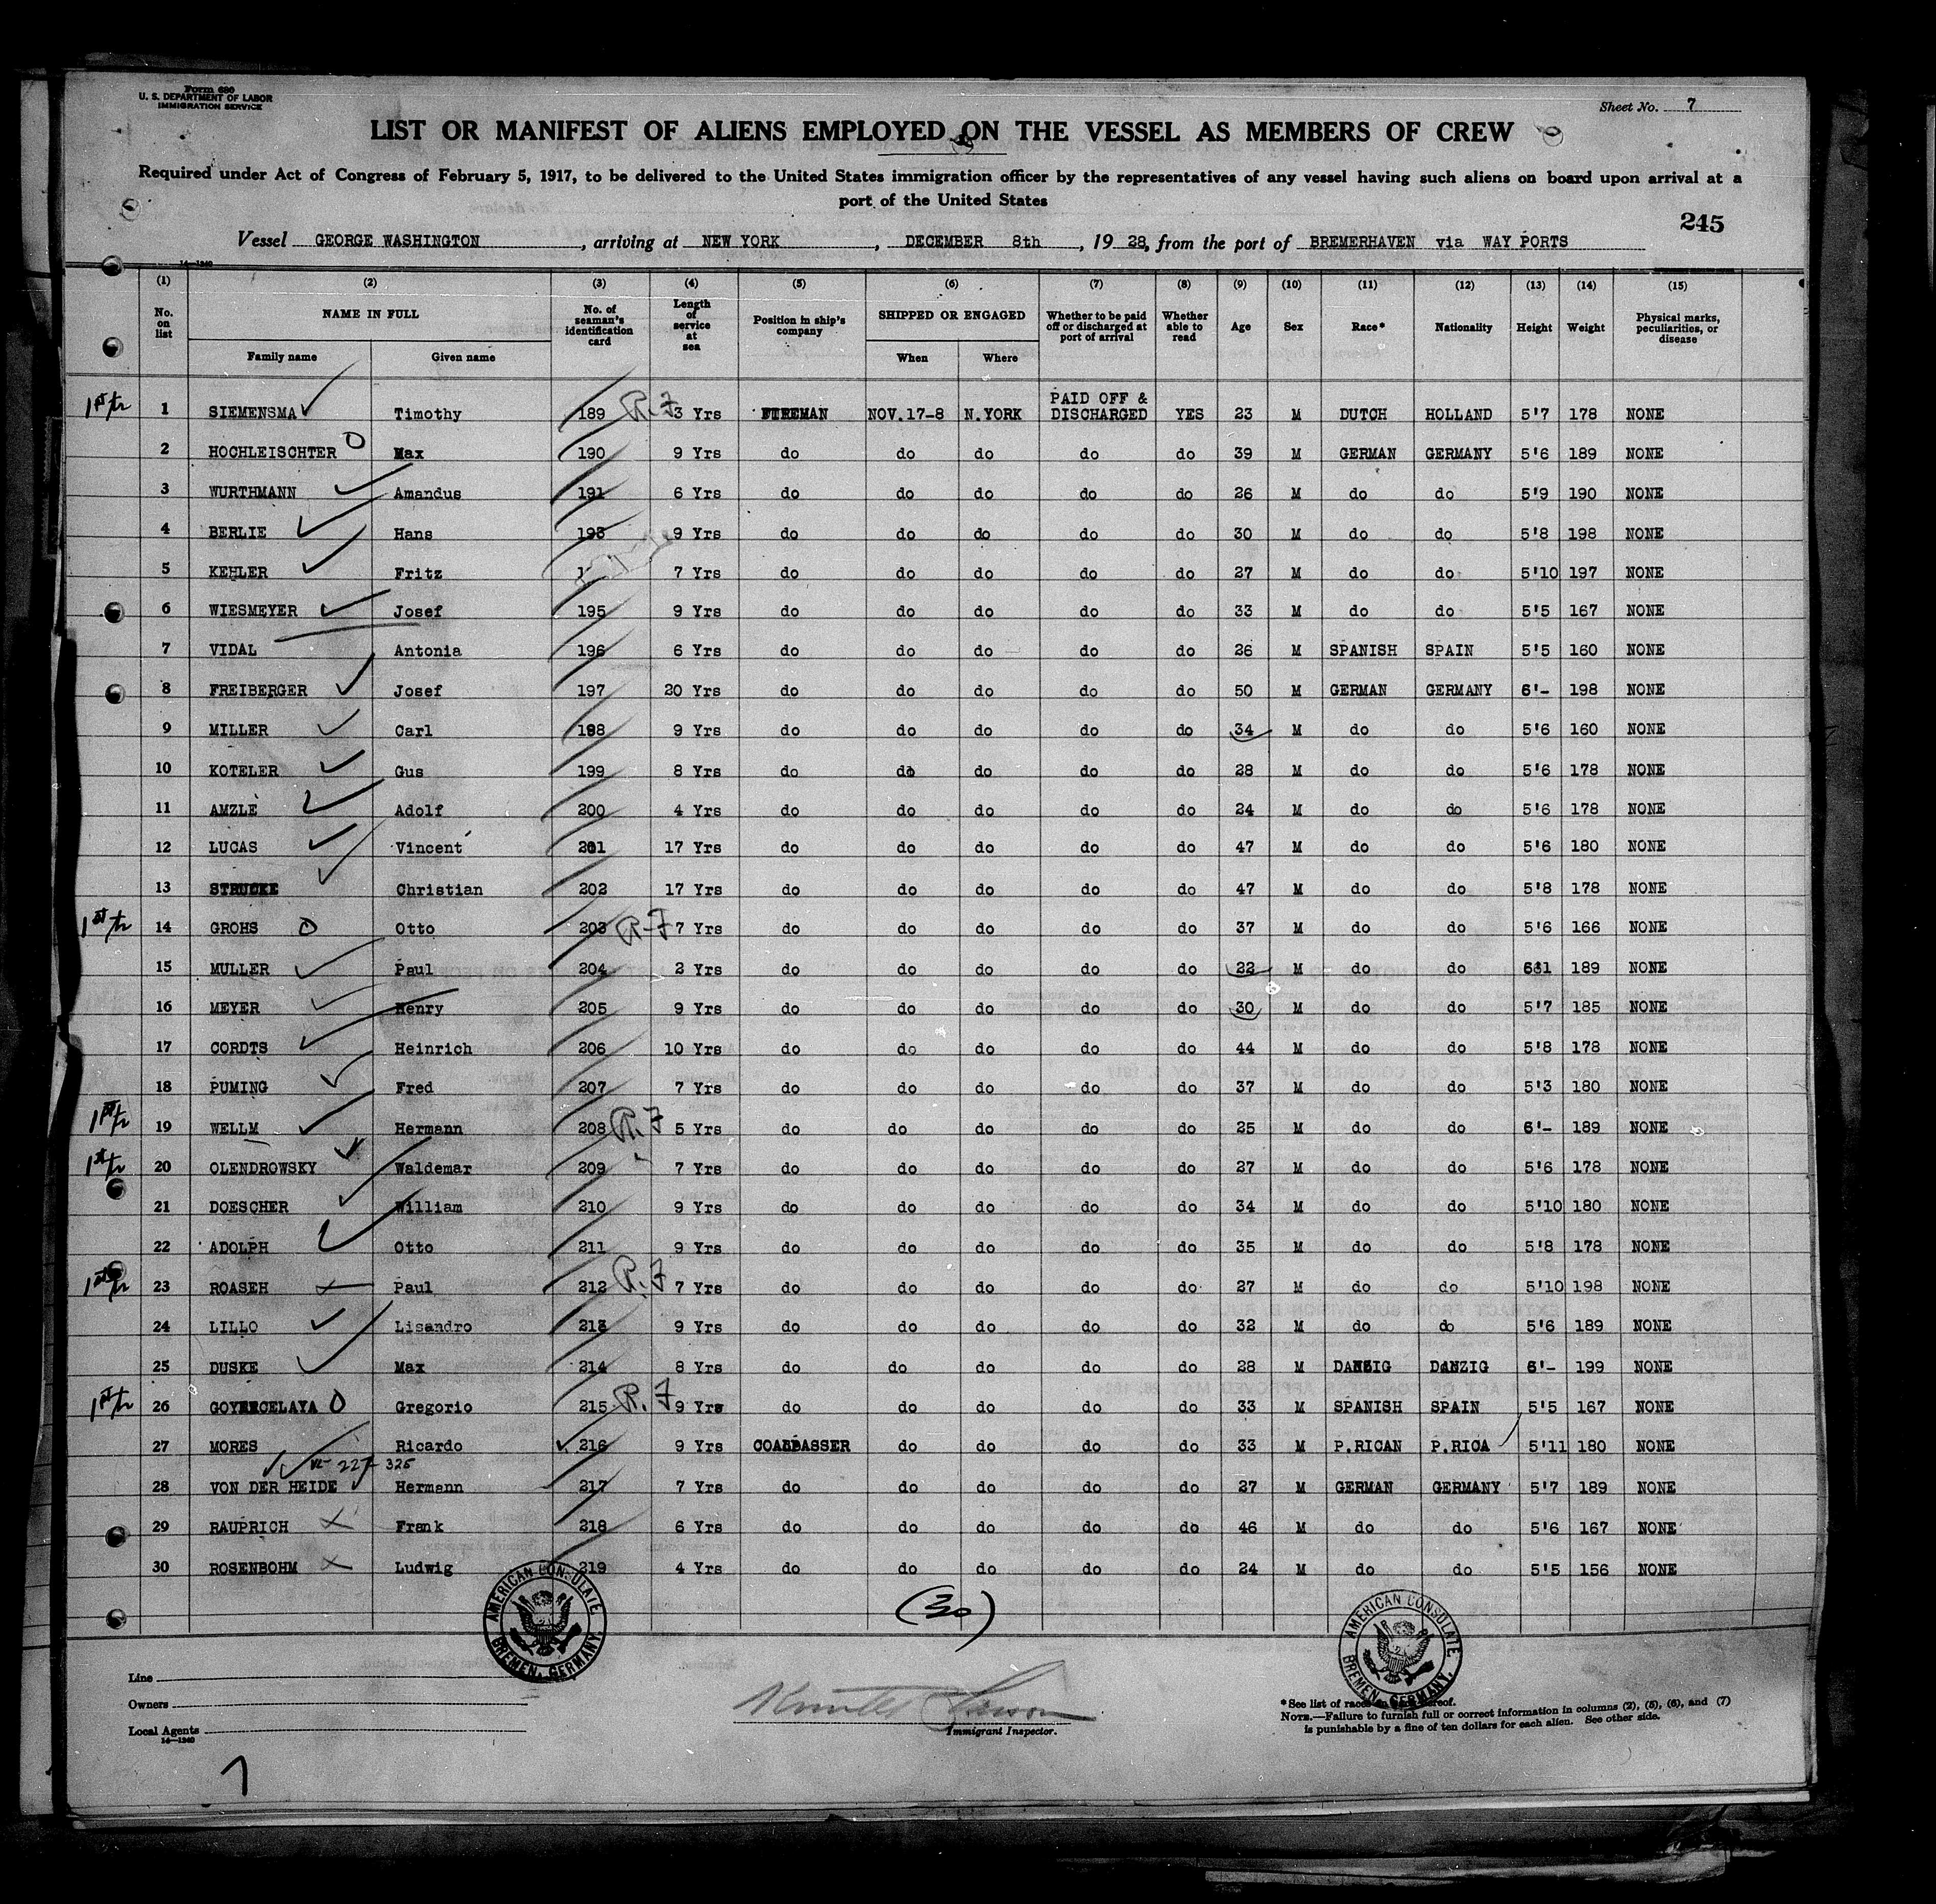 Form 680
U. S. DEPARTMENT OF LABOR
IMMIGRATION SERVICE
Sheet No. 7
LIST OR MANIFEST OF ALIENS EMPLOYED ON THE VESSEL AS MEMBERS OF CREW
Required under Act of Congress of February 5, 1917, to be delivered to the United States immigration officer by the representatives of any vessel having such aliens on board upon arrival at a
port of the United States
245
Vessel GEORGE WASHINGTON, arriving at NEW YORK, DECEMBER 8th, 1928, from the port of BREMERHAVEN via WAY PORTS
14—1240
(1) (2) (3) (4) (5) (6) (7) (8) (9) (10) (11) (12) (13) (14) (15)
No. on list NAME IN FULL No. of seaman's identification card Length of service at sea Position in ship's company SHIPPED OR ENGAGED Whether to be paid off or discharged at port of arrival Whether able to read Age Sex Race* Nationality Height Weight Physical marks, peculiarities, or disease
Family name Given name When Where
1st tr 1 SIEMENSMA Timothy 189 R.F 3 Yrs FIREMAN NOV.17-8 N.YORK PAID OFF & DISCHARGED YES 23 M DUTCH HOLLAND 5'7 178 NONE
2 HOCHLEISCHTER Max 190 9 Yrs do do do do do 39 M GERMAN GERMANY 5'6 189 NONE
3 WURTHMANN Amandus 191 6 Yrs do do do do do 26 M do do 5'9 190 NONE
4 BERLIE Hans 193 9 Yrs do do do do do 30 M do do 5'8 198 NONE
5 KEHLER Fritz 7 Yrs do do do do do 27 M do do 5'10 197 NONE
6 WIESMEYER Josef 195 9 Yrs do do do do do 33 M do do 5'5 167 NONE
7 VIDAL Antonia 196 6 Yrs do do do do do 26 M SPANISH SPAIN 5'5 160 NONE
8 FREIBERGER Josef 197 20 Yrs do do do do do 50 M GERMAN GERMANY 6'- 198 NONE
9 MILLER Carl 198 9 Yrs do do do do do 34 M do do 5'6 160 NONE
10 KOTELER Gus 199 8 Yrs do do do do do 28 M do do 5'6 178 NONE
11 AMZLE Adolf 200 4 Yrs do do do do do 24 M do do 5'6 178 NONE
12 LUCAS Vincent 201 17 Yrs do do do do do 47 M do do 5'6 180 NONE
13 STRUCKE Christian 202 17 Yrs do do do do do 47 M do do 5'8 178 NONE
1st tr 14 GROHS Otto 203 R-F 7 Yrs do do do do do 37 M do do 5'6 166 NONE
15 MULLER Paul 204 2 Yrs do do do do do 22 M do do 6'1 189 NONE
16 MEYER Henry 205 9 Yrs do do do do do 30 M do do 5'7 185 NONE
17 CORDTS Heinrich 206 10 Yrs do do do do do 44 M do do 5'8 178 NONE
18 PUMING Fred 207 7 Yrs do do do do do 37 M do do 5'3 180 NONE
1st tr 19 WELLM Hermann 208 R.F 5 Yrs do do do do do 25 M do do 6'- 189 NONE
1st tr 20 OLENDROWSKY Waldemar 209 7 Yrs do do do do do 27 M do do 5'6 178 NONE
21 DOESCHER William 210 9 Yrs do do do do do 34 M do do 5'10 180 NONE
22 ADOLPH Otto 211 9 Yrs do do do do do 35 M do do 5'8 178 NONE
1st tr 23 ROASEH Paul 212 R.F 7 Yrs do do do do do 27 M do do 5'10 198 NONE
24 LILLO Lisandro 213 9 Yrs do do do do do 32 M do do 5'6 189 NONE
25 DUSKE Max 214 8 Yrs do do do do do 28 M DANZIG DANZIG 6'- 199 NONE
1st tr 26 Gregorio 215 R.F 9 Yrs do do do do do 33 M SPANISH SPAIN 5'5 167 NONE
27 MORES Ricardo 216 9 Yrs COALPASSER do do do do 33 M P.RICAN P.RICA 5'11 180 NONE
227-325
28 VON DER HEIDE Hermann 217 7 Yrs do do do do do 27 M GERMAN GERMANY 5'7 189 NONE
29 RAUPRICH Frank 218 6 Yrs do do do do do 46 M do do 5'6 167 NONE
30 ROSENBOHM Ludwig 219 4 Yrs do do do do do 24 M do do 5'5 156 NONE
(30)
AMERICAN CONSULATE BREMEN, GERMANY.
AMERICAN CONSULATE BREMEN, GERMANY.
Line
Owners
Local Agents
14—1240
Immigrant Inspector.
*See list of races on back hereof.
NOTE.—Failure to furnish full or correct information in columns (2), (5), (6), and (7)
is punishable by a fine of ten dollars for each alien. See other side.
7